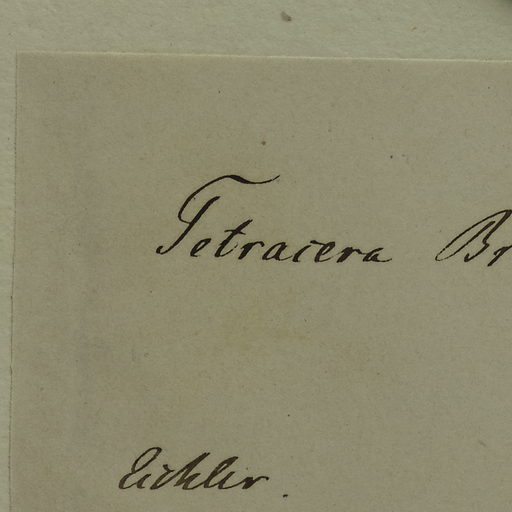 Tetracera Br
Eichler.